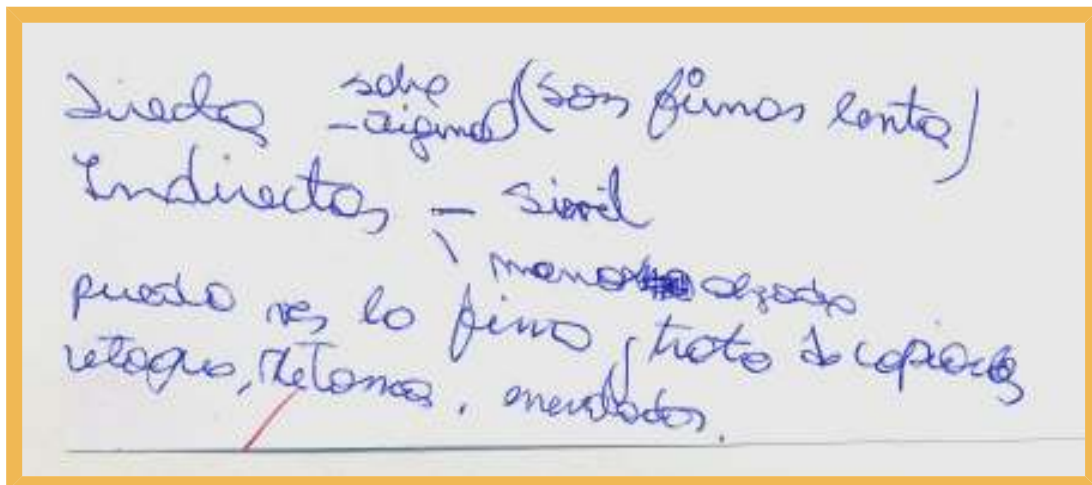 Directas sobre
- original (son firmas lentas)
Indirectas - simil
mano alzada
puedo ver la firma, trato de copiarla
retoques, Retomas, enmendados.